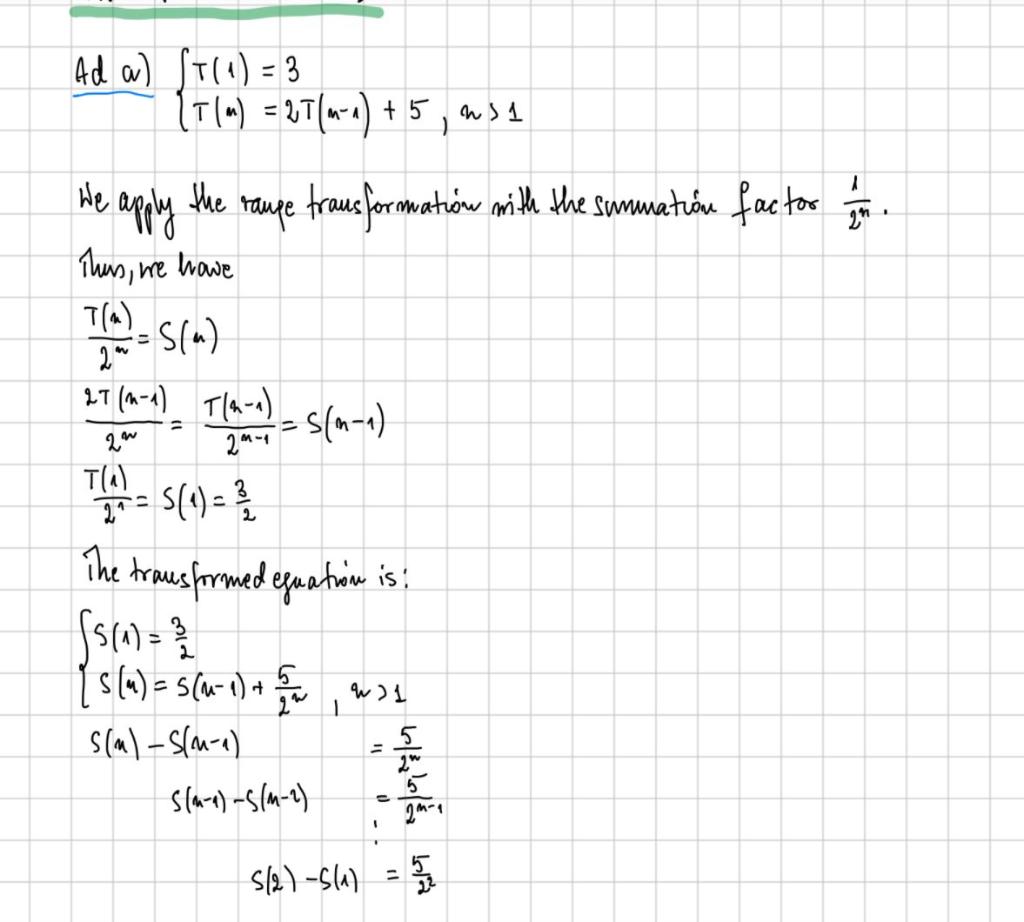 Ad a) { T(1) = 3
T(n) = 2T(n-1) + 5 , n > 1
We apply the range transformation with the summation factor 1/2^n .
Thus, we have
T(n)/2^n = S(n)
2T(n-1)/2^n = T(n-1)/2^(n-1) = S(n-1)
T(1)/2^1 = S(1) = 3/2
The transformed equation is:
{ S(1) = 3/2
S(n) = S(n-1) + 5/2^n , n > 1
S(n) - S(n-1) = 5/2^n
S(n-1) - S(n-2) = 5/2^(n-1)
⋮
S(2) - S(1) = 5/2^2